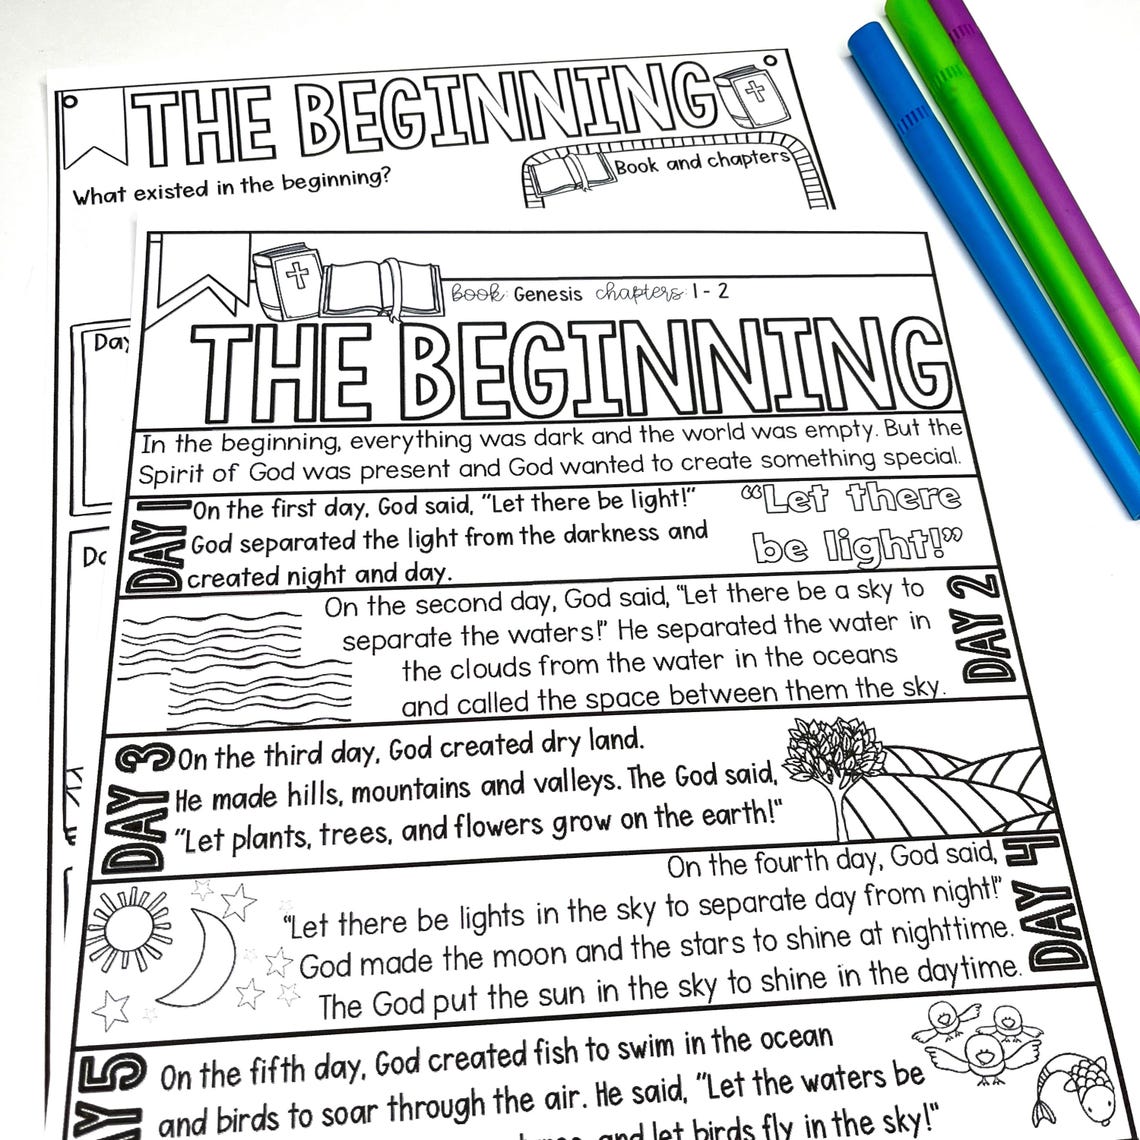 THE BEGINNING
What existed in the beginning?
Book and chapters
Day
book: Genesis chapters: 1 - 2
THE BEGINNING
In the beginning, everything was dark and the world was empty. But the
Spirit of God was present and God wanted to create something special.
DAY 1
On the first day, God said, "Let there be light!"
God separated the light from the darkness and
created night and day.
"Let there
be light!"
On the second day, God said, "Let there be a sky to
separate the waters!" He separated the water in
the clouds from the water in the oceans
and called the space between them the sky.
DAY 2
DAY 3
On the third day, God created dry land.
He made hills, mountains and valleys. The God said,
"Let plants, trees, and flowers grow on the earth!"
On the fourth day, God said,
"Let there be lights in the sky to separate day from night!"
God made the moon and the stars to shine at nighttime.
The God put the sun in the sky to shine in the daytime.
DAY 4
DAY 5
On the fifth day, God created fish to swim in the ocean
and birds to soar through the air. He said, "Let the waters be
and let birds fly in the sky!"